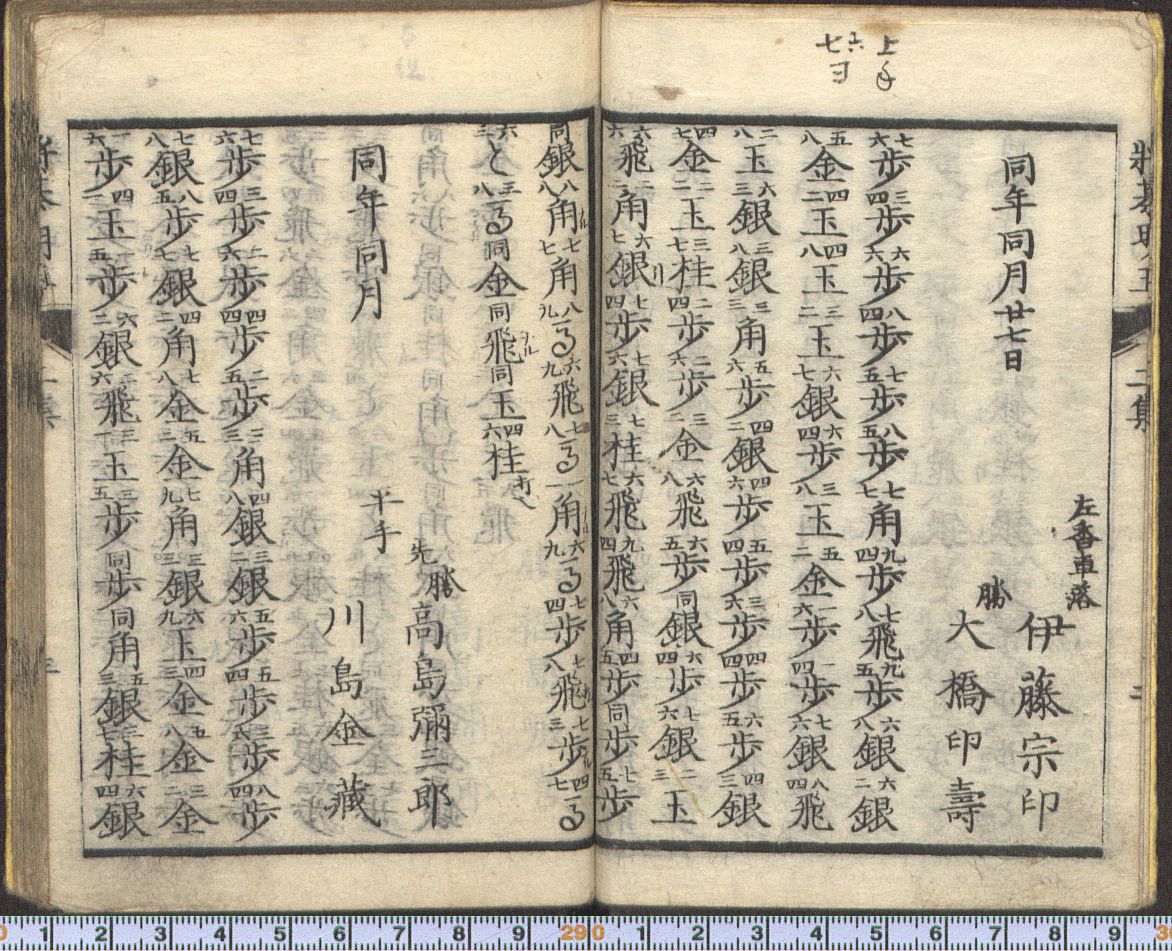 上手
七六ヨ
同年同月廿七日
左香車落
伊藤宗印
勝 大橋印壽
七六歩 三四歩 六六歩 八四歩 七五歩 八五歩 七七角 九四歩 七八飛 九五歩 六八銀 六二銀
五八金 四二玉 四八玉 三二玉 六七銀 六四歩 三八玉 五二金 一六歩 一四歩 七六銀 八四飛
二八玉 六三銀 三八銀 三三角 五六歩 四二銀 四六歩 五四歩 三六歩 四四歩 六五歩 四三銀
四七金 二二玉 三七桂 二四歩 二六歩 三二金 六八飛 六五歩 同銀 六四歩 七六銀 二三玉
六六飛 二二角 六七銀 七四歩 七六銀 七三桂 六七飛 九四飛 六八角 四五歩 同歩 七五歩
同銀 八八角ナル 七七角 八九馬 六九飛 七八馬 一一角ナル 六九馬 七四歩 七八飛 七三歩ナル 四七馬
六三と 三八馬 同金 同飛ナル 同玉 四六桂打
同年同月
平手
先勝 高島彌三郎
川島金藏
七六歩 三四歩 二六歩 四四歩 二五歩 三三角 四八銀 三二銀 五六歩 五四歩 三六歩 八四歩
七八銀 八五歩 七七銀 四二角 七八金 五二金 七九角 三三銀 六九玉 四三金 五八金 三二金
一六歩 四一玉 一五歩 六二銀 二六飛 三一玉 三五歩 同歩 同角 五三銀 三七桂 六四銀